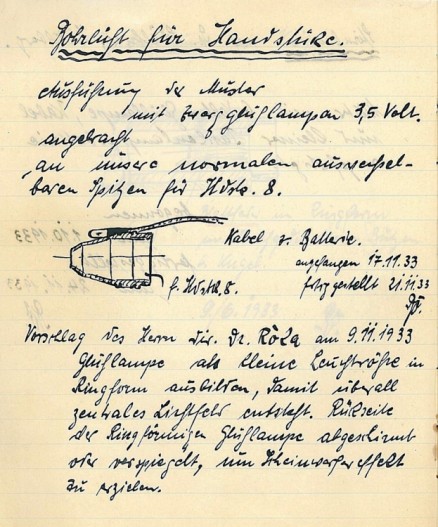 Bohrlicht für Handstücke.
Ausführung der Muster
mit Zwergglühlampen 3,5 Volt.
angebracht
an unsere normalen auswechsel-
baren Spitzen für Hdstk. 8.
Kabel z. Batterie.
angefangen 17.11.33
f. Hdstk. 8. fertiggestellt 21.11.33
Vorschlag des Herrn Dir. Dr. Röka am 9.11.1933
Glühlampe als kleine Leuchtröhre in
Ringform ausbilden, damit überall
zentrales Lichtfeld entsteht. Rückseite
der Ringförmigen Glühlampe abgeschirmt
oder verspiegelt, um Scheinwerfereffekt
zu erzielen.